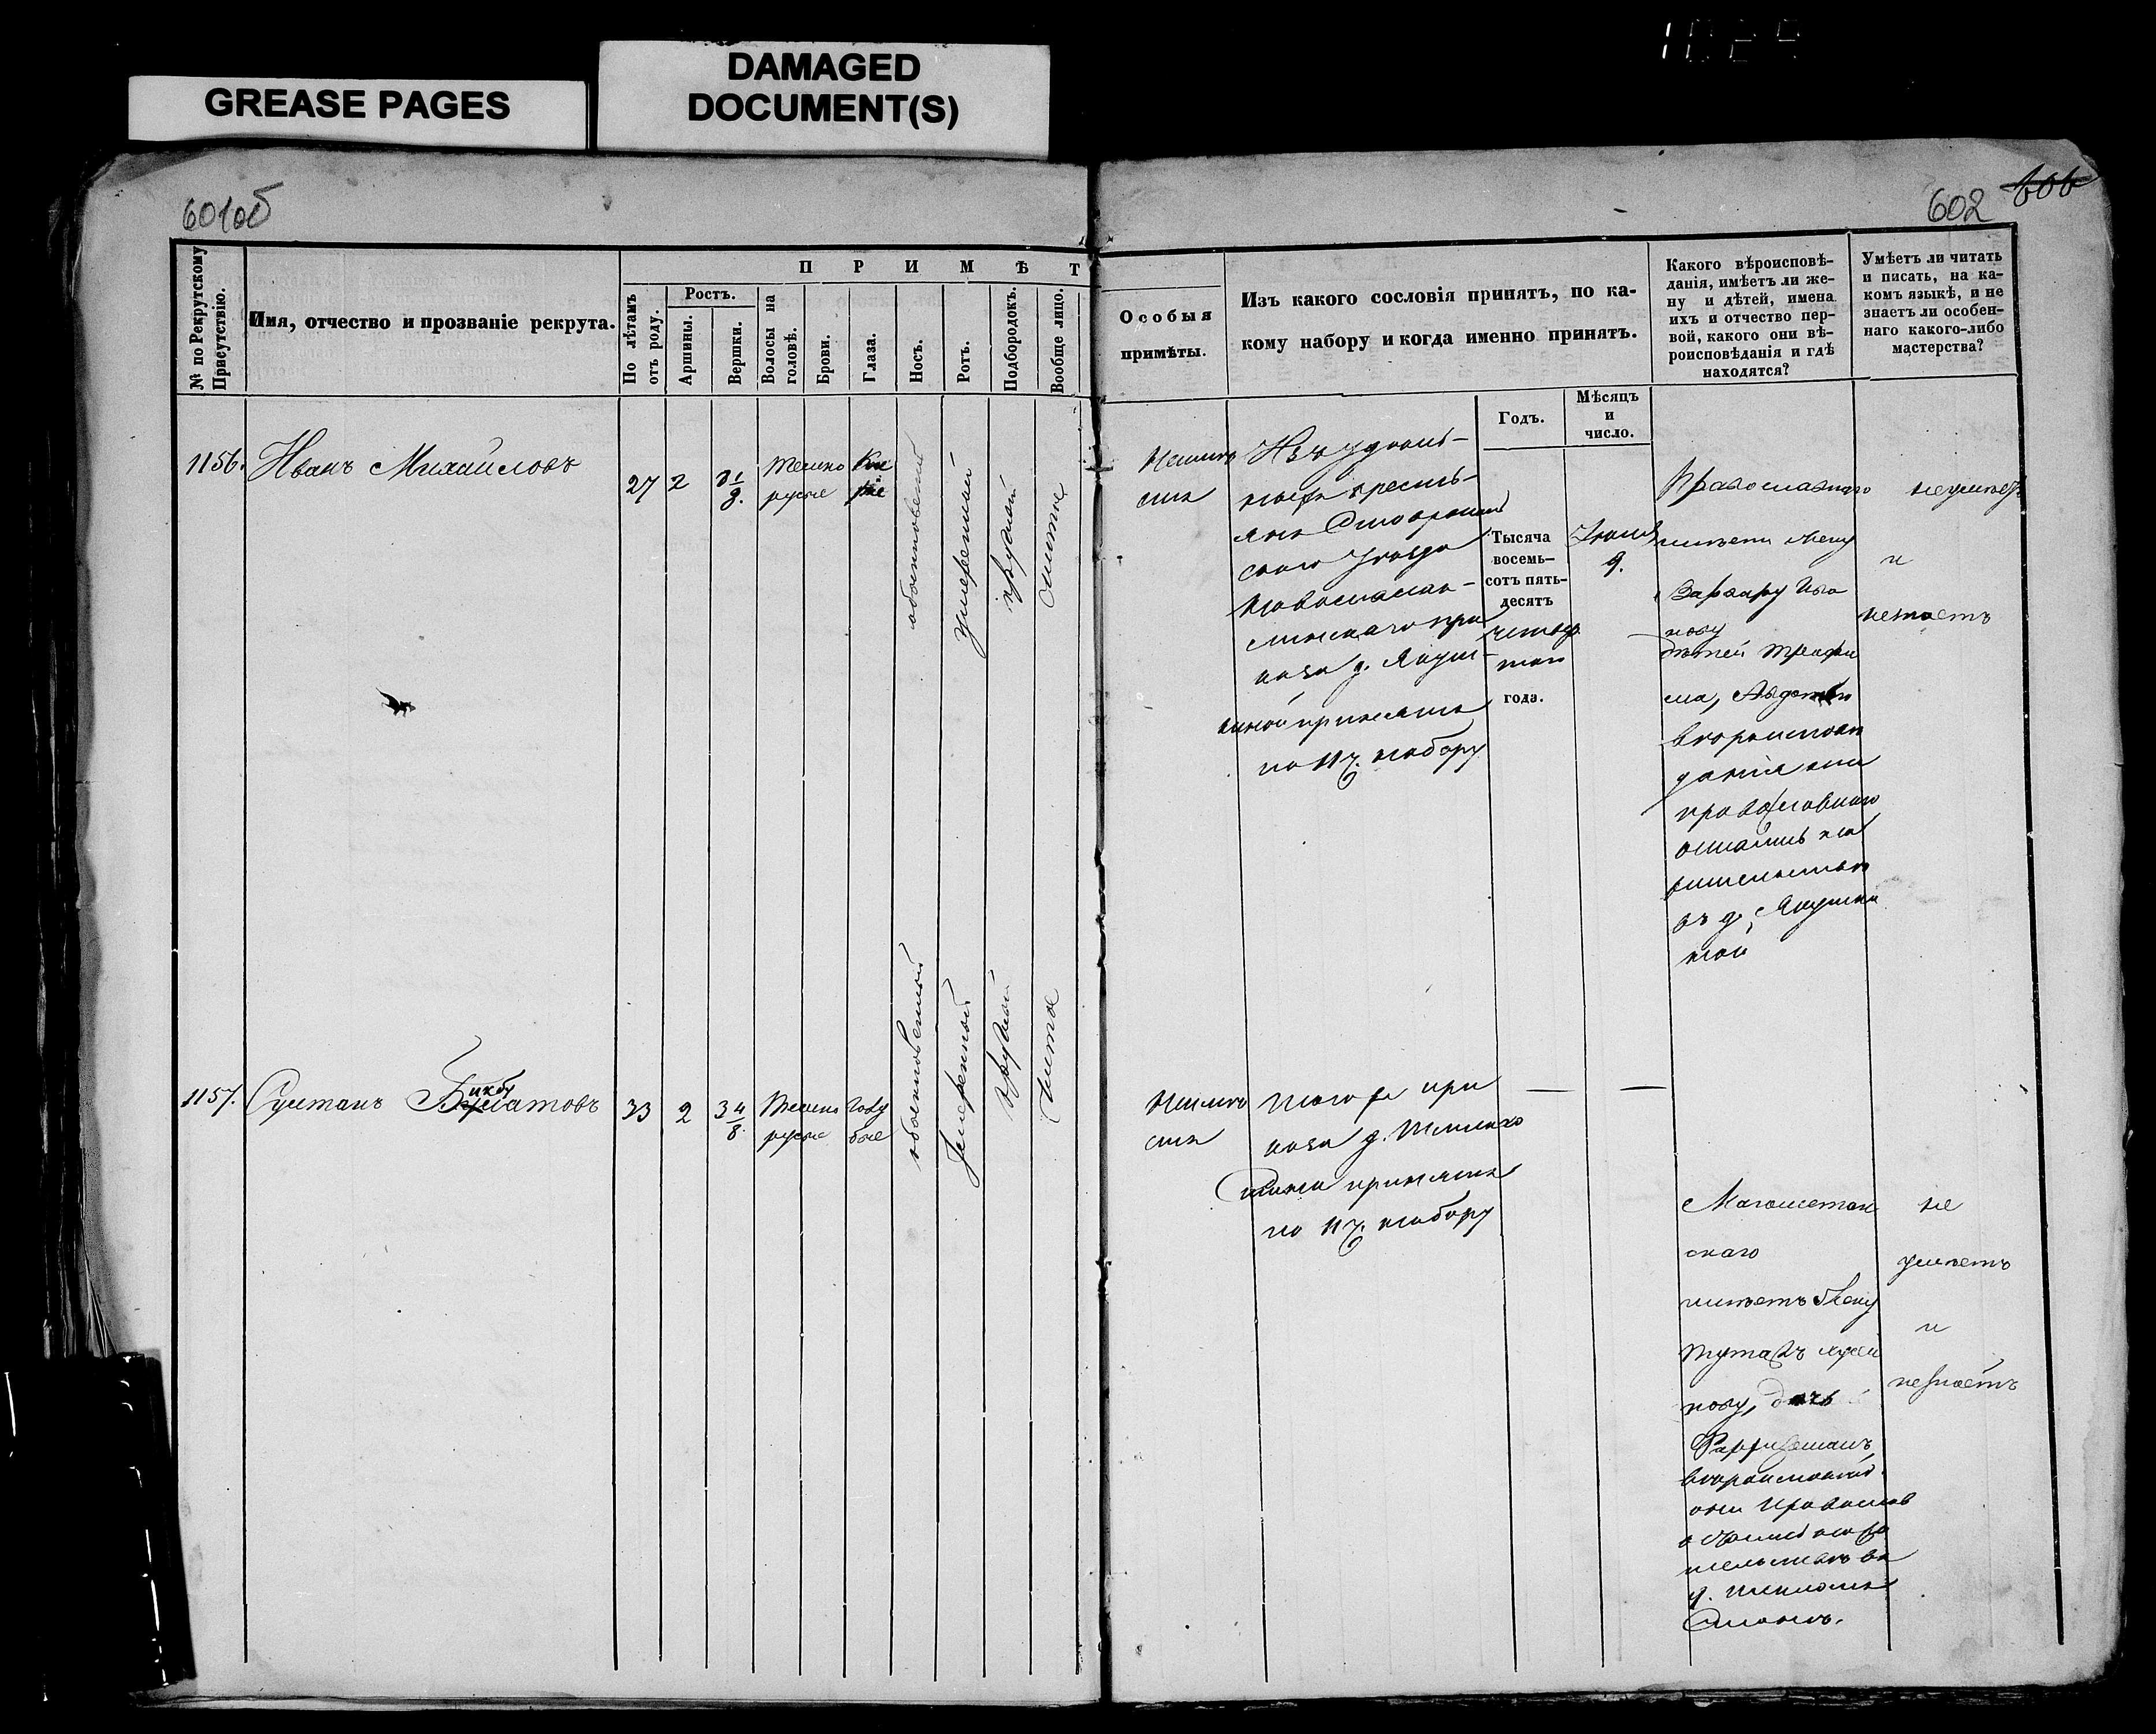 GREASE PAGES
DAMAGED
DOCUMENT(S)
601об
602 606
№ по Рекрутскому
Присутствію.
Имя, отчество и прозваніе рекрута.
П Р И М Ѣ Т
По лѣтамъ
отъ роду.
Ростъ.
Аршины.
Вершки.
Волосы на
головѣ.
Брови.
Глаза.
Носъ.
Ротъ.
Подбородокъ.
Вообще лицо.
Особыя
примѣты.
Изъ какого сословія принятъ, по ка-
кому набору и когда именно принятъ.
Годъ.
Мѣсяцъ
и
число.
Какого вѣроисповѣ-
данія, имѣетъ ли же-
ну и дѣтей, имена
ихъ и отчество пер-
вой, какого они вѣ-
роисповѣданія и гдѣ
находятся?
Умѣетъ ли читать
и писать, на ка-
комъ языкѣ, и не
знаетъ ли особен-
наго какого-либо
мастерства?
1156.
Иванъ Михайловъ
27
2
3 1/8.
Темно
русые
Ка
ріе
обыкновенный
умеренный
круглой
чистое
Изъ удѣль-
ныхъ кресть-
янъ
скаго уѣзда
при
каза д. Якуш-
киной принятъ
по 11 ч. набору
Тысяча
восемь-
сотъ пять-
десятъ
четвер
таго
года.
Іюля
9.
Православнаго
имѣетъ жену
Варвару Ива
нову
дѣтей Трофи
ма, Авдотью
вѣроисповѣ
данія они
православнаго
остались на
жительствѣ
въ д. Якушки
ной
неумѣетъ
и
незнаетъ
1157.
Султанъ Бикбулатовъ
33
2
3 4/8.
Темно
русые
голу
бые
обыкновенный
Умеренной
круглой
Чистое
Того же при
каза д.
принятъ
по 11 ч. набору
Магометан
скаго
имѣетъ жену
нову, дочь
вѣроисповѣд.
они
остались на жи
тельствѣ въ
д.
не
умѣетъ
и
незнаетъ